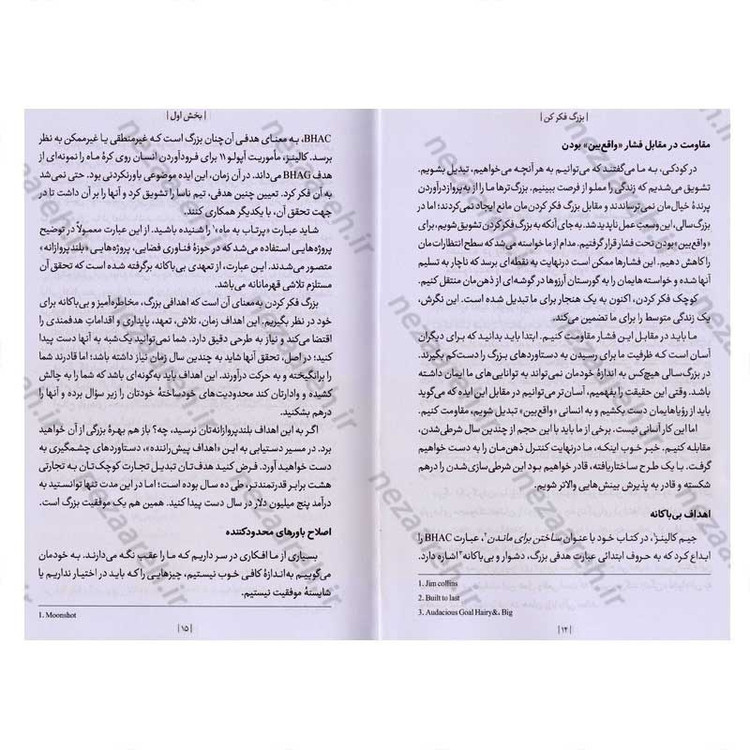 | بزرگ فکر کن |
مقاومت در مقابل فشار «واقع‌بین» بودن
در کودکی، به ما می‌گفتند که می‌توانیم به هر آنچه می‌خواهیم، تبدیل بشویم.
تشویق می‌شدیم که زندگی را مملو از فرصت ببینیم. بزرگ‌ترها ما را از به پرواز درآوردن
پرندۀ خیال‌مان نمی‌ترساندند و مقابل بزرگ فکر کردن‌مان مانع ایجاد نمی‌کردند؛ اما در
بزرگ‌سالی، این وسعتِ عمل ناپدید شد. به جای آنکه به بزرگ فکر کردن تشویق شویم، برای
«واقع‌بین» بودن تحت فشار قرار گرفتیم. مدام از ما خواسته می‌شد که سطح انتظارات‌مان
را کاهش دهیم. این فشارها ممکن است درنهایت به نقطه‌ای برسد که ناچار به تسلیم
آنها شده و خواسته‌هایمان را به گورستان آرزوها در گوشه‌ای از ذهن‌مان منتقل کنیم.
کوچک فکر کردن، اکنون به یک هنجار برای ما تبدیل شده است. این نگرش،
یک زندگی متوسط را برای ما تضمین می‌کند.
ما باید در مقابل این فشار مقاومت کنیم. ابتدا باید بدانید که برای دیگران
آسان است که ظرفیت ما برای رسیدن به دستاوردهای بزرگ را دست‌کم بگیرند.
در بزرگ‌سالی هیچ‌کس به اندازۀ خودمان نمی‌تواند به توانایی‌های ما ایمان داشته
باشد. وقتی این حقیقت را بفهمیم، آسان‌تر می‌توانیم در مقابل این ایده که می‌گوید
باید از رؤیاهایمان دست بکشیم و به انسانی «واقع‌بین» تبدیل شویم، مقاومت کنیم.
اما این کار آسانی نیست. برخی از ما باید با این حجم از چندین سال شرطی‌شدن،
مقابله کنیم. خبر خوب اینکه، ما درنهایت کنترل ذهن‌مان را به دست خواهیم
گرفت. با یک طرح ساختاریافته، قادر خواهیم بود این شرطی‌سازی‌شدن را درهم
شکسته و قادر به پذیرش بینش‌هایی والاتر شویم.
اهداف بی‌باکانه
جیم کالینز¹، در کتاب خود با عنوان ساختن برای ماندن²، عبارت BHAC را
ابداع کرد که به حروف ابتدائی عبارت هدفی بزرگ، دشوار و بی‌باکانه³ اشاره دارد.
1. Jim collins
2. Built to last
3. Audacious Goal Hairy&, Big
| ۱۴ |
| بخش اول |
BHAC، به معنای هدفی آن‌چنان بزرگ است که غیرمنطقی یا غیرممکن به نظر
برسد. کالینز، مأموریت آپولو ۱۱ برای فرودآوردن انسان روی کرۀ ماه را نمونه‌ای از
هدف BHAG می‌داند. در آن زمان، این ایده موضوعی باورنکردنی بود. حتی نمی‌شد
به آن فکر کرد. تعیین چنین هدفی، تیم ناسا را تشویق کرد و آنها را بر آن داشت تا در
جهت تحقق آن، با یکدیگر همکاری کنند.
شاید عبارت «پرتاب به ماه»¹ را شنیده باشید. از این عبارت معمولاً در توضیح
پروژه‌هایی استفاده می‌شد که در حوزۀ فناوری فضایی، پروژه‌هایی «بلندپروازانه»
متصور می‌شدند. این عبارت، از تعهدی بی‌باکانه برگرفته شده است که تحقق آن
مستلزم تلاشی قهرمانانه می‌باشد.
بزرگ فکر کردن به‌معنای آن است که اهدافی بزرگ، مخاطره‌آمیز و بی‌باکانه برای
خود در نظر بگیریم. این اهداف زمان، تلاش، تعهد، پایداری و اقداماتِ هدفمندی را
اقتضا می‌کند و نیاز به طرحی دقیق دارد. شما نمی‌توانید یک‌شبه به آنها دست پیدا
کنید؛ در اصل، تحقق آنها شاید به چندین سال زمان نیاز داشته باشد؛ اما قادرند شما
را برانگیخته و به حرکت درآورند. این اهداف باید به‌گونه‌ای باشد که شما را به چالش
کشیده و وادارتان کند محدودیت‌های خودساختۀ خودتان را زیر سؤال برده و آنها را
درهم بشکنید.
اگر به این اهداف بلندپروازانه‌تان نرسید، چه؟ باز هم بهرۀ بزرگی از آن خواهید
برد. در مسیر دستیابی به این «اهداف پیش‌راننده»، دستاوردهای چشمگیری به
دست خواهید آورد. فرض کنید هدف‌تان تبدیل تجارت کوچک‌تان به تجارتی
هشت برابر قدرتمندتر، طی ده سال بوده است؛ اما در این مدت تنها توانستید به
درآمد پنج میلیون دلار در سال دست پیدا کنید. همین هم یک موفقیت بزرگ است.
اصلاح باورهای محدودکننده
بسیاری از ما افکاری در سر داریم که ما را عقب نگه می‌دارند. به خودمان
می‌گوییم به‌اندازۀ کافی خوب نیستیم، چیزهایی را که باید در اختیار نداریم یا
شایستۀ موفقیت نیستیم.
1. Moonshot
| ۱۵ |
nezaareh.ir